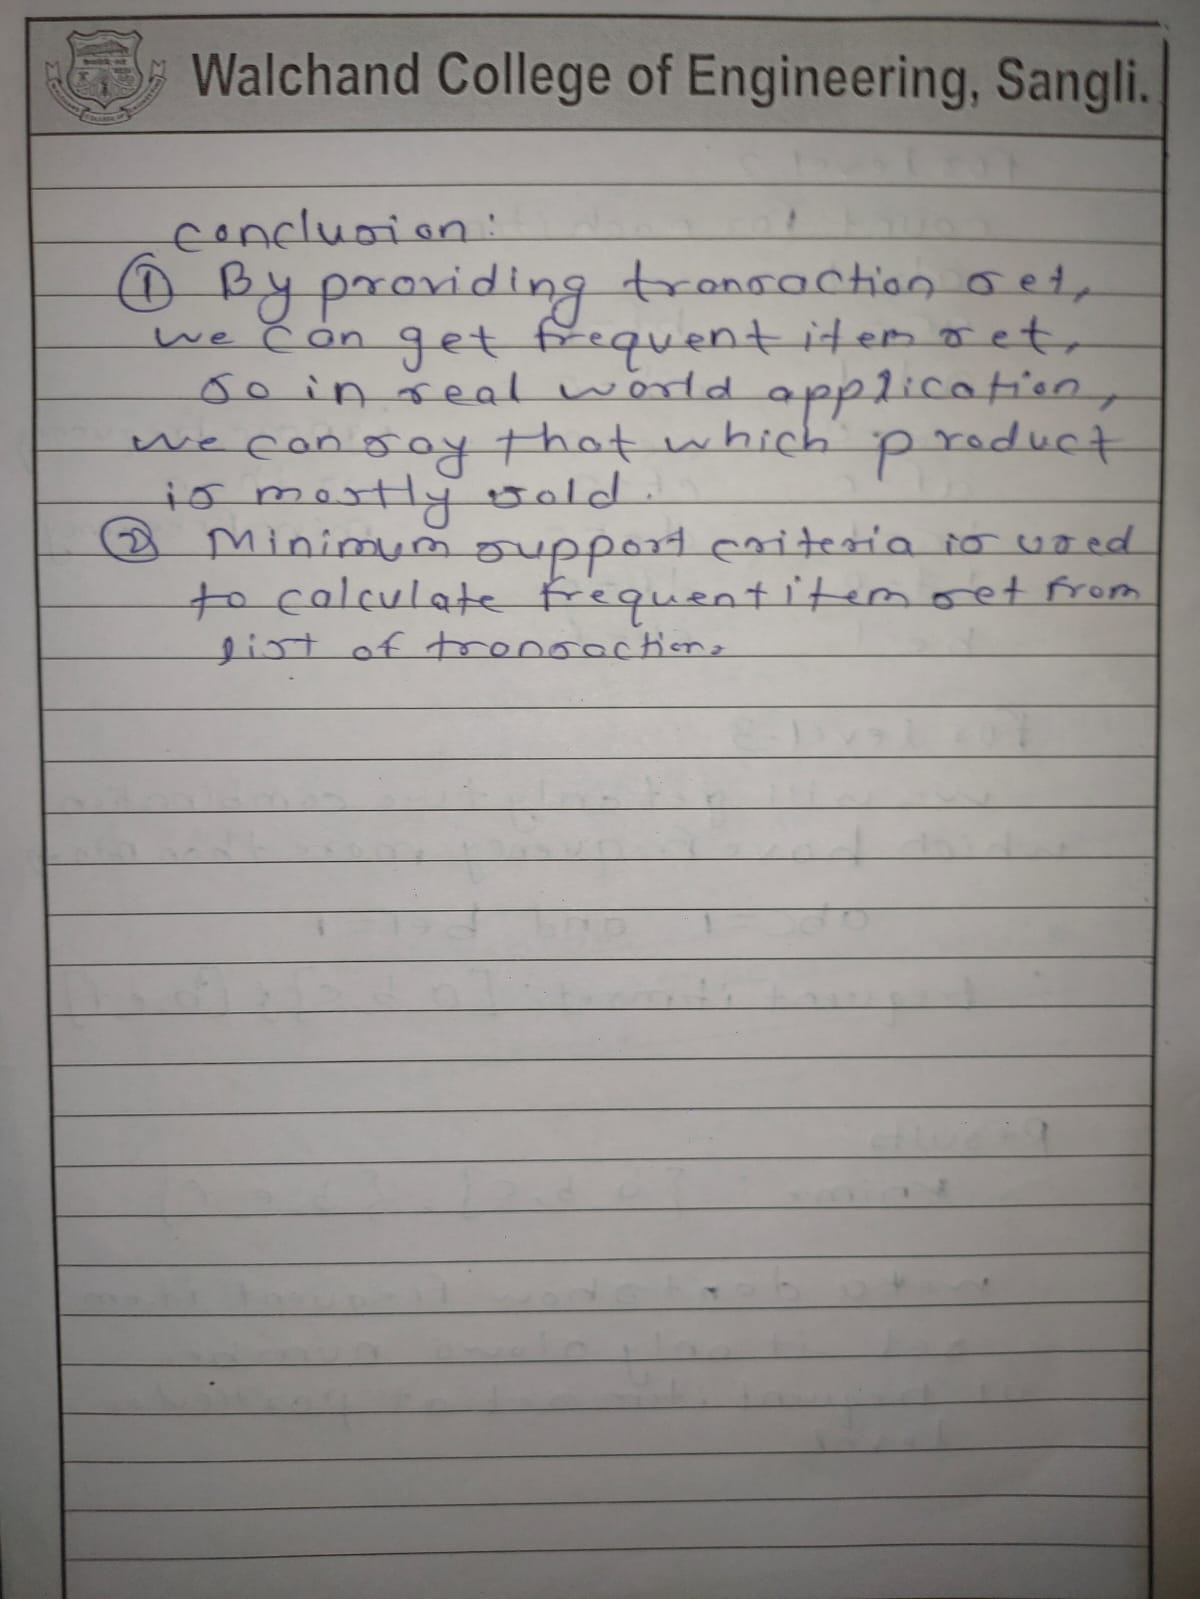 Walchand College of Engineering, Sangli.
conclusion:
① By providing transaction set,
we can get frequent item set,
so in real world application,
we can say that which product
is mostly sold.
② Minimum support criteria is used
to calculate frequent item set from
list of transactions